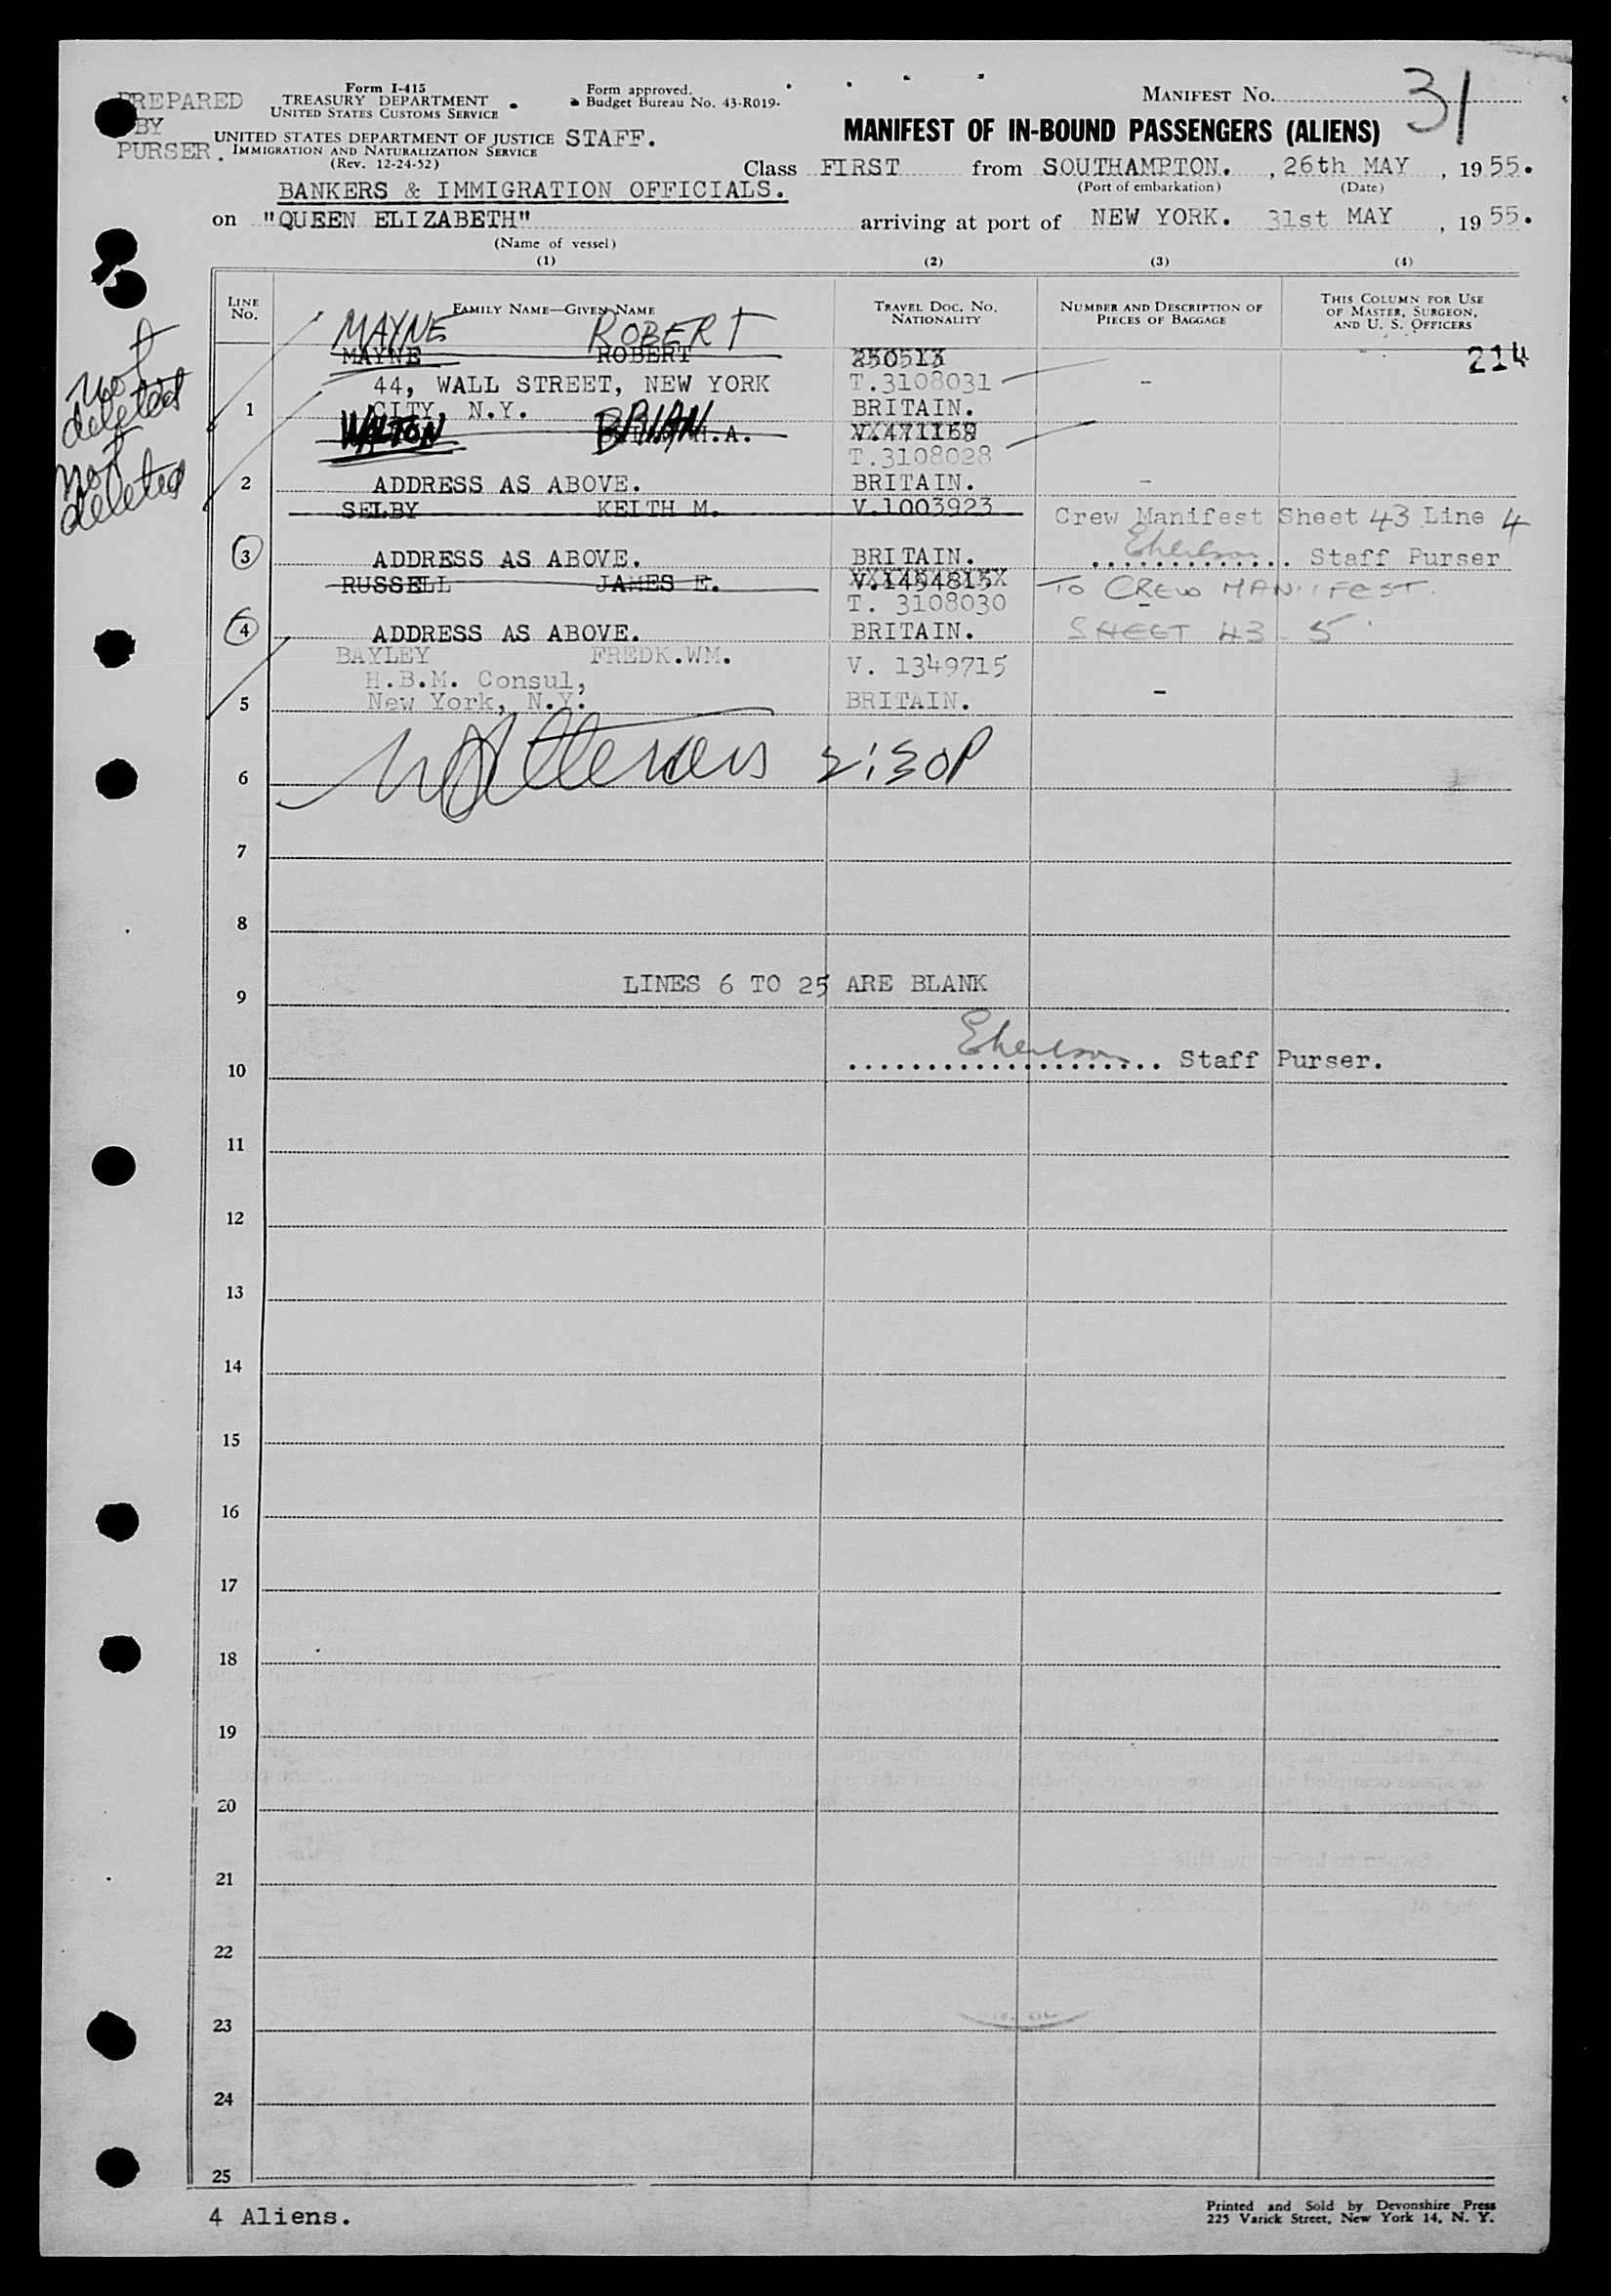 PREPARED
BY
PURSER.
Form I-415
TREASURY DEPARTMENT
UNITED STATES CUSTOMS SERVICE
UNITED STATES DEPARTMENT OF JUSTICE STAFF.
IMMIGRATION AND NATURALIZATION SERVICE
(Rev. 12-24-52)
Form approved.
Budget Bureau No. 43-R019.
MANIFEST NO. 31
MANIFEST OF IN-BOUND PASSENGERS (ALIENS)
Class FIRST from SOUTHAMPTON. , 26th MAY , 1955.
(Port of embarkation) (Date)
BANKERS & IMMIGRATION OFFICIALS.
on "QUEEN ELIZABETH" arriving at port of NEW YORK. 31st MAY , 1955.
(Name of vessel)
(1) (2) (3) (4)
LINE NO.
FAMILY NAME—GIVEN NAME
TRAVEL DOC. NO. NATIONALITY
NUMBER AND DESCRIPTION OF PIECES OF BAGGAGE
THIS COLUMN FOR USE OF MASTER, SURGEON, AND U. S. OFFICERS
not deleted
not deleted
MAYNE ROBERT
MAYNE ROBERT 250513 214
44, WALL STREET, NEW YORK T.3108031 -
1 CITY, N.Y. BRITAIN.
WALTON BRIAN M.A. V.471168
T.3108028
2 ADDRESS AS ABOVE. BRITAIN. -
SELBY KEITH M. V.1003923 Crew Manifest Sheet 43 Line 4
3 ADDRESS AS ABOVE. BRITAIN. .............. Staff Purser
RUSSELL JAMES E. V.1454815 TO CREW MANIFEST.
T. 3108030
4 ADDRESS AS ABOVE. BRITAIN. SHEET 43 5
BAYLEY FREDK.WM. V. 1349715
H.B.M. Consul,
5 New York, N.Y. BRITAIN. -
6 2:30P
7
8
LINES 6 TO 25 ARE BLANK
9
10 .................... Staff Purser.
11
12
13
14
15
16
17
18
19
20
21
22
23
24
25
4 Aliens.
Printed and Sold by Devonshire Press
225 Varick Street, New York 14, N. Y.